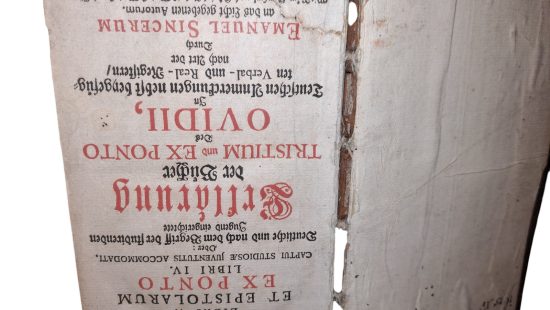 ET EPISTOLARUM
EX PONTO
LIBRI IV.
CAPTUI STUDIOSÆ JUVENTUTIS ACCOMMODATI,
Oder:
Deutliche und nach dem Begriff der studirenden
Jugend eingerichtete
Erklärung
der Bücher
TRISTIUM und EX PONTO
Des
OVIDII,
In
Teutschen Anmerckungen nebst beygefüg-
ten Verbal- und Real-Registern/
nach Art der
Durch
EMANUEL SINCERUM
an das Licht gegebenen Autorum.